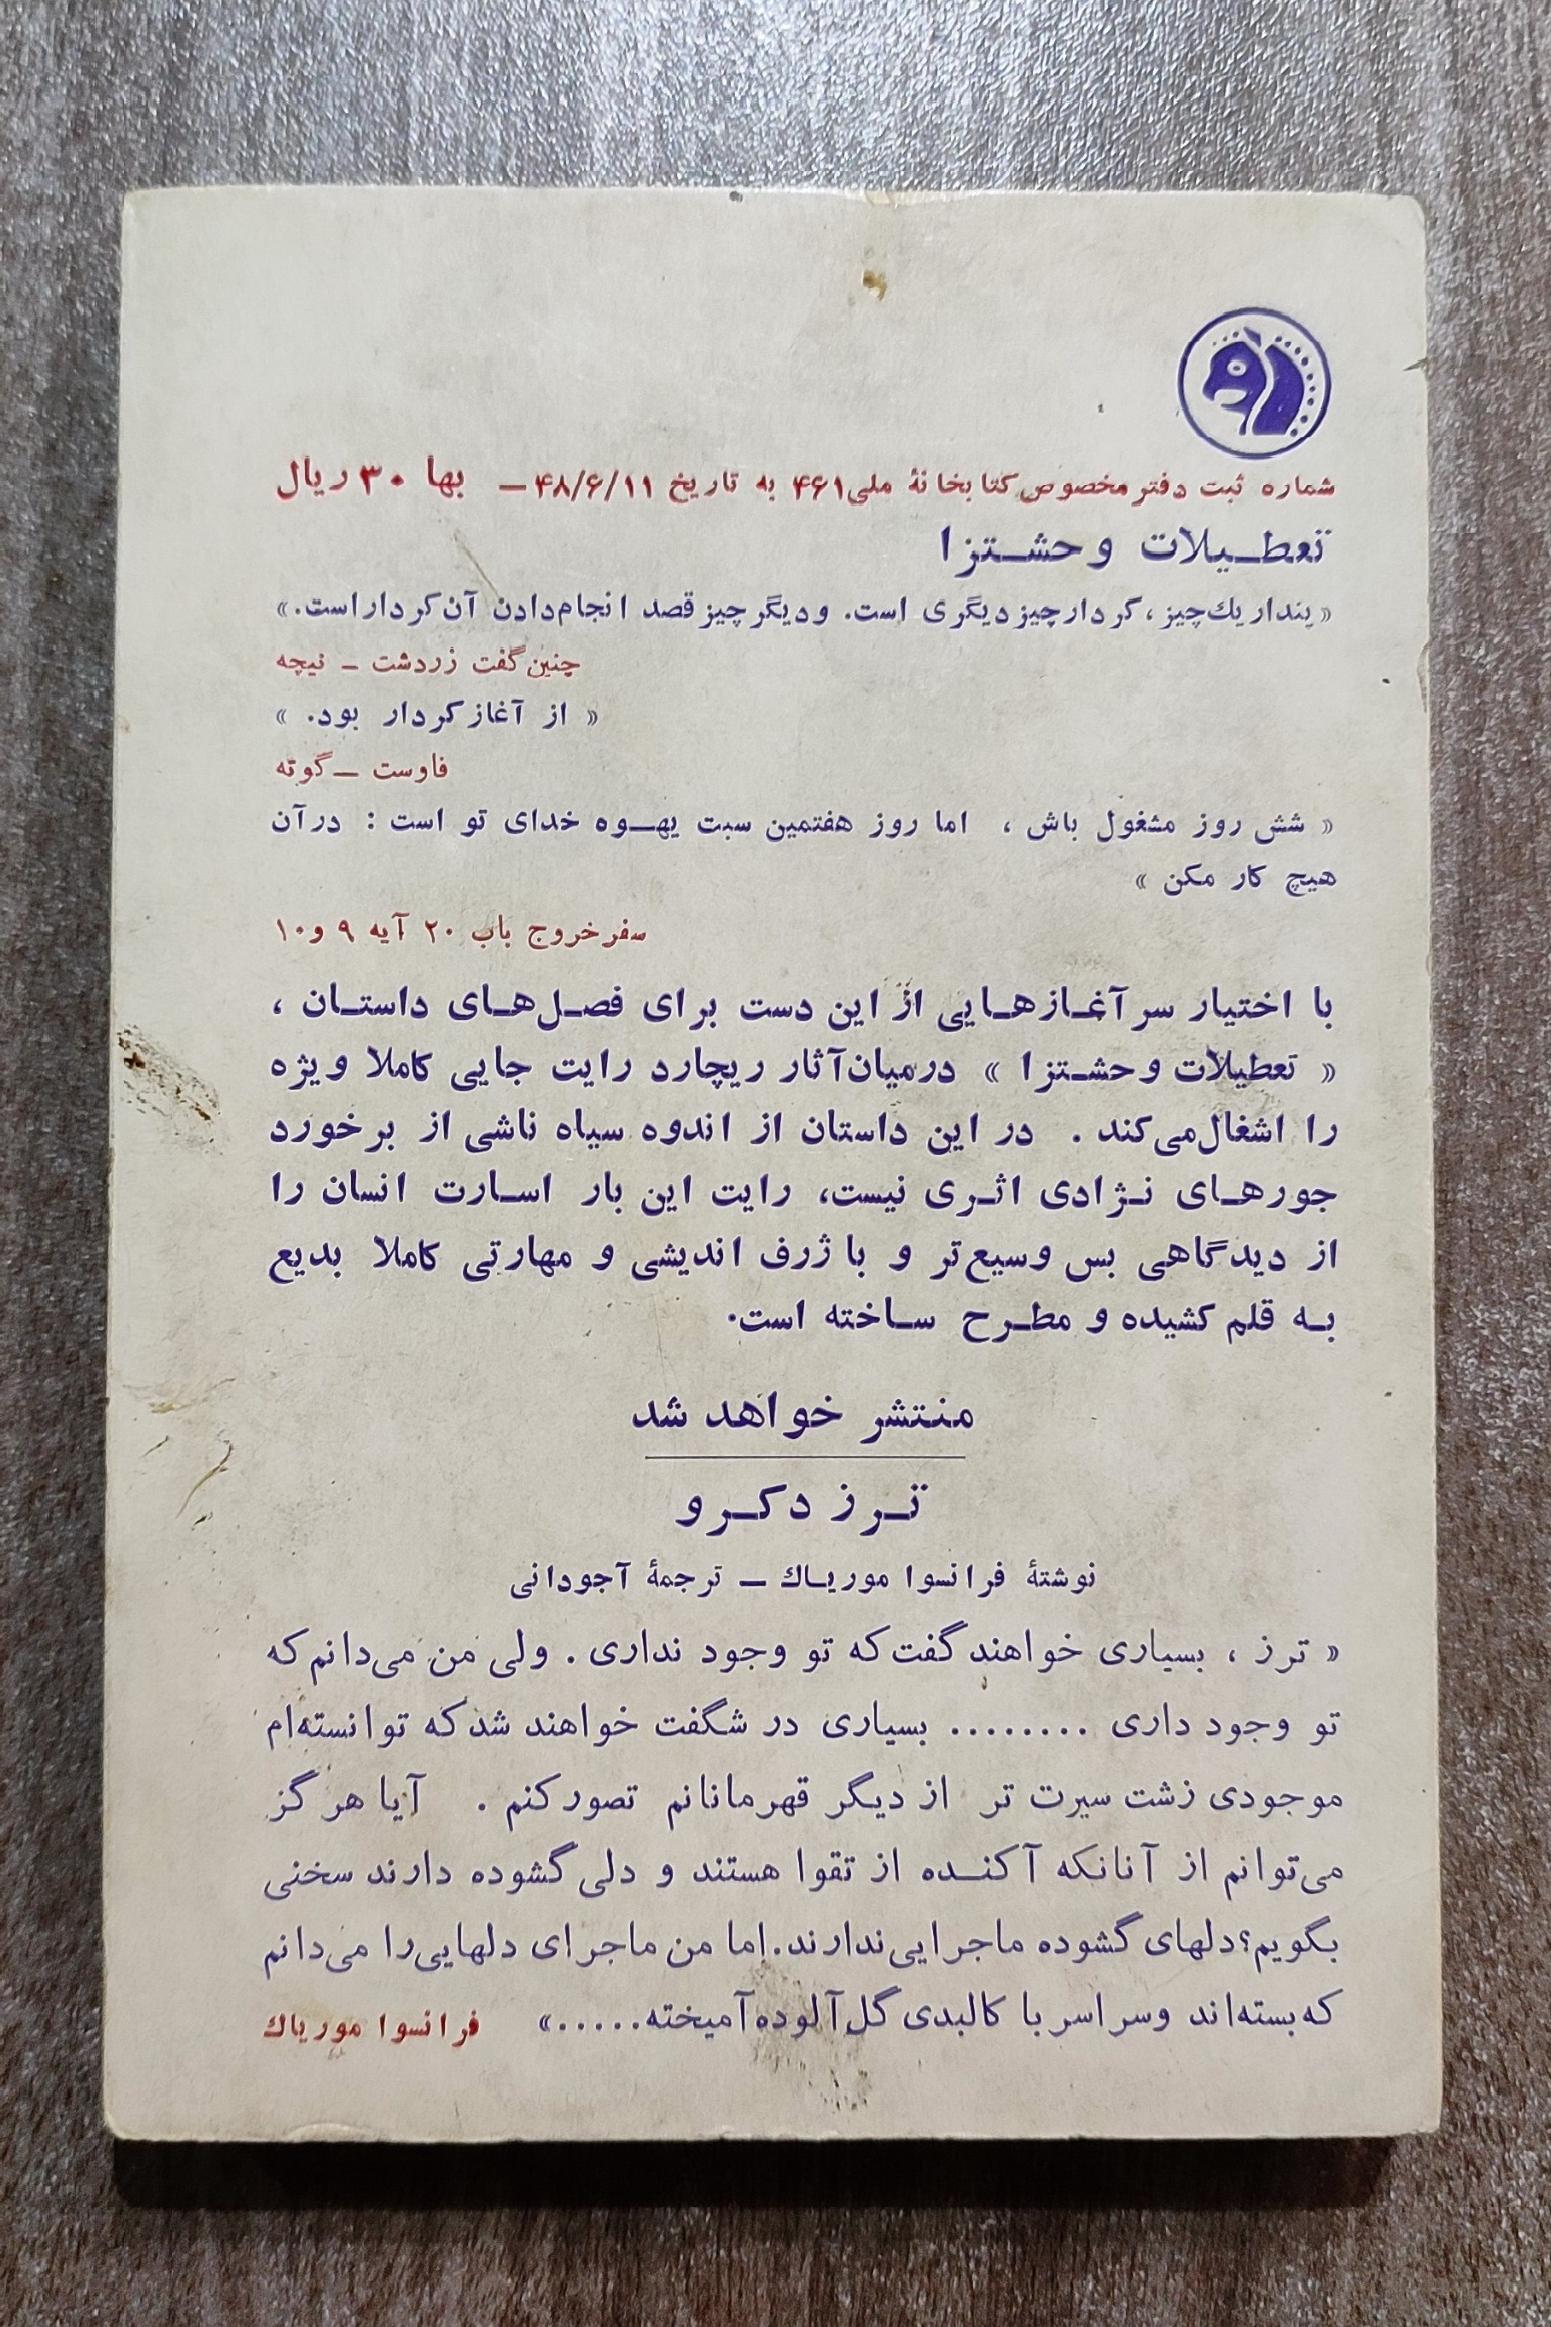 شماره ثبت دفتر مخصوص کتابخانهٔ ملی ۴۶۱ به تاریخ ۴۸/۶/۱۱ — بها ۳۰ ریال
تعطیلات وحشتزا
« پندار یك چیز، کردار چیز دیگری است. و دیگر چیز قصد انجام دادن آن کردار است.»
چنین گفت زردشت – نیچه
« از آغاز کردار بود. »
فاوست – گوته
« شش روز مشغول باش ، اما روز هفتمین سبت یهوه خدای تو است : در آن
هیچ کار مکن »
سفر خروج باب ۲۰ آیه ۹ و ۱۰
با اختیار سرآغازهایی از این دست برای فصل‌های داستان ،
« تعطیلات وحشتزا » درمیان آثار ریچارد رایت جایی کاملا ویژه
را اشغال می‌کند . در این داستان از اندوه سیاه ناشی از برخورد
جورهای نژادی اثری نیست، رایت این بار اسارت انسان را
از دیدگاهی بس وسیع‌تر و با ژرف اندیشی و مهارتی کاملا بدیع
به قلم کشیده و مطرح ساخته است.
منتشر خواهد شد
ترز دکرو
نوشتهٔ فرانسوا موریاك – ترجمهٔ آجودانی
« ترز ، بسیاری خواهند گفت که تو وجود نداری . ولی من می‌دانم که
تو وجود داری ........ بسیاری در شگفت خواهند شد که توانسته‌ام
موجودی زشت سیرت تر از دیگر قهرمانانم تصور کنم . آیا هرگز
می‌توانم از آنانکه آکنده از تقوا هستند و دلی گشوده دارند سخنی
بگویم؟ دلهای گشوده ماجرایی ندارند. اما من ماجرای دلهایی را می‌دانم
که بسته‌اند و سراسر با کالبدی گل‌آلوده آمیخته.....» فرانسوا موریاك